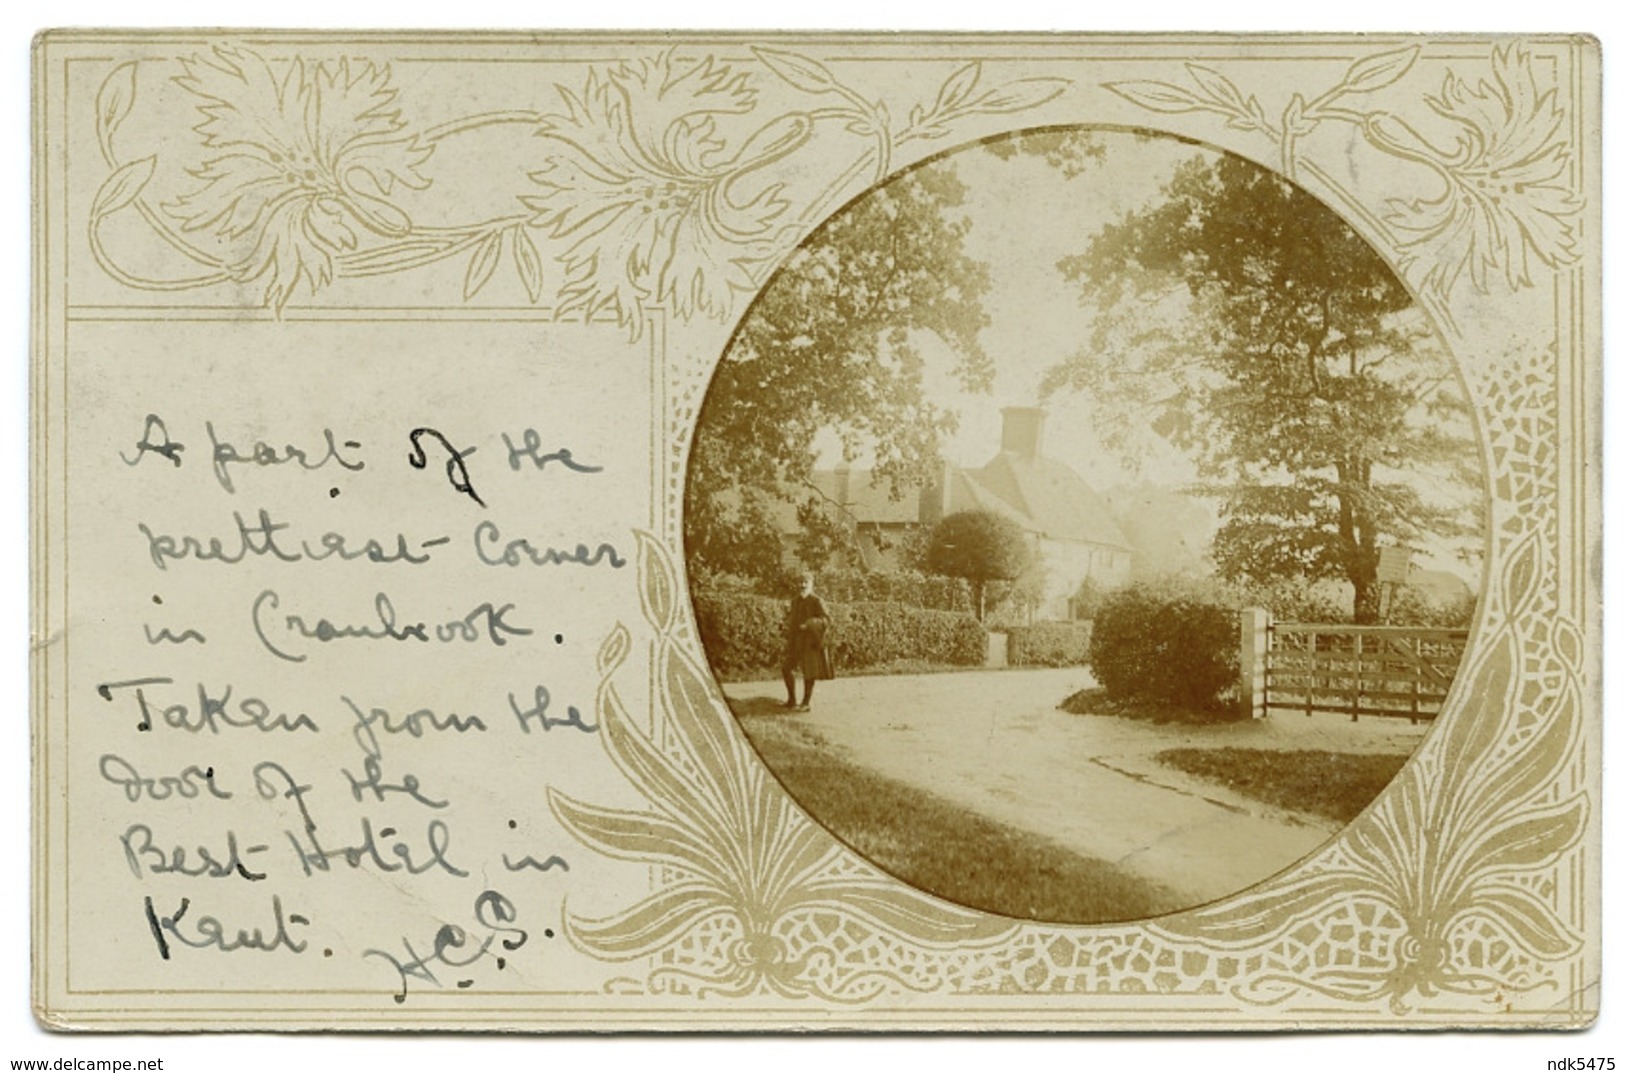 A part of the
prettiest Corner
in Cranbrook.
Taken from the
door of the
Best Hotel in
Kent. H.C.S.
www.delcampe.net
ndk5475